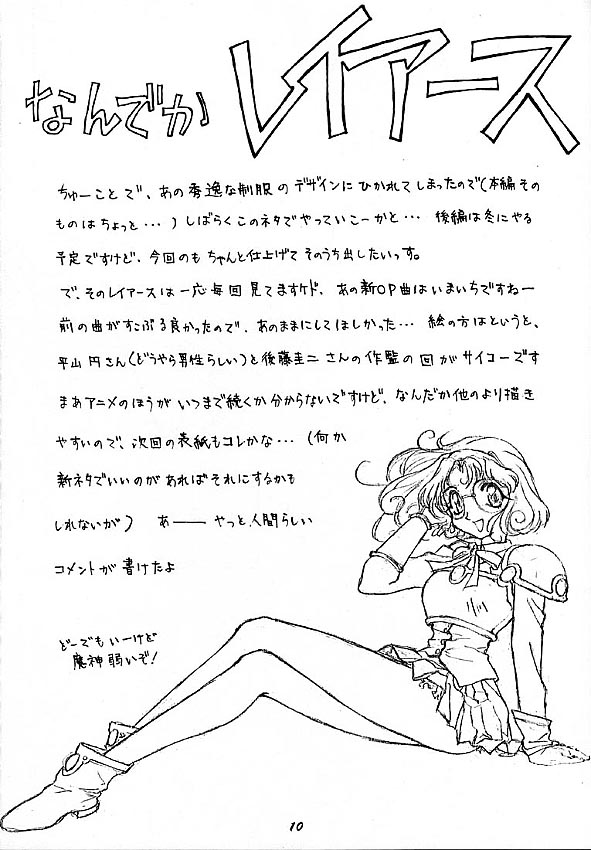 なんでか レイアース
ちゅーことで、あの秀逸な制服のデザインにひかれてしまったので(本編その
ものはちょっと・・・)しばらくこのネタでやっていこーかと・・・ 後編は冬にやる
予定ですけど、今回のもちゃんと仕上げてそのうち出したいっす。
で、そのレイアースは一応毎回見てますケド、あの新OP曲はいまいちですねー
前の曲がすこぶる良かったので、あのままにしてほしかった・・・ 絵の方はというと、
平山円さん(どうやら男性らしい)と後藤圭二さんの作監の回がサイコーです
まあアニメのほうがいつまで続くか分からないですけど、なんだか他のより描き
やすいので、次回の表紙もコレかな・・・(何か
新ネタでいいのがあればそれにするかも
しれないが) あ―― やっと、人間らしい
コメントが書けたよ
どーでもいーけど
魔神弱いぞ!
10